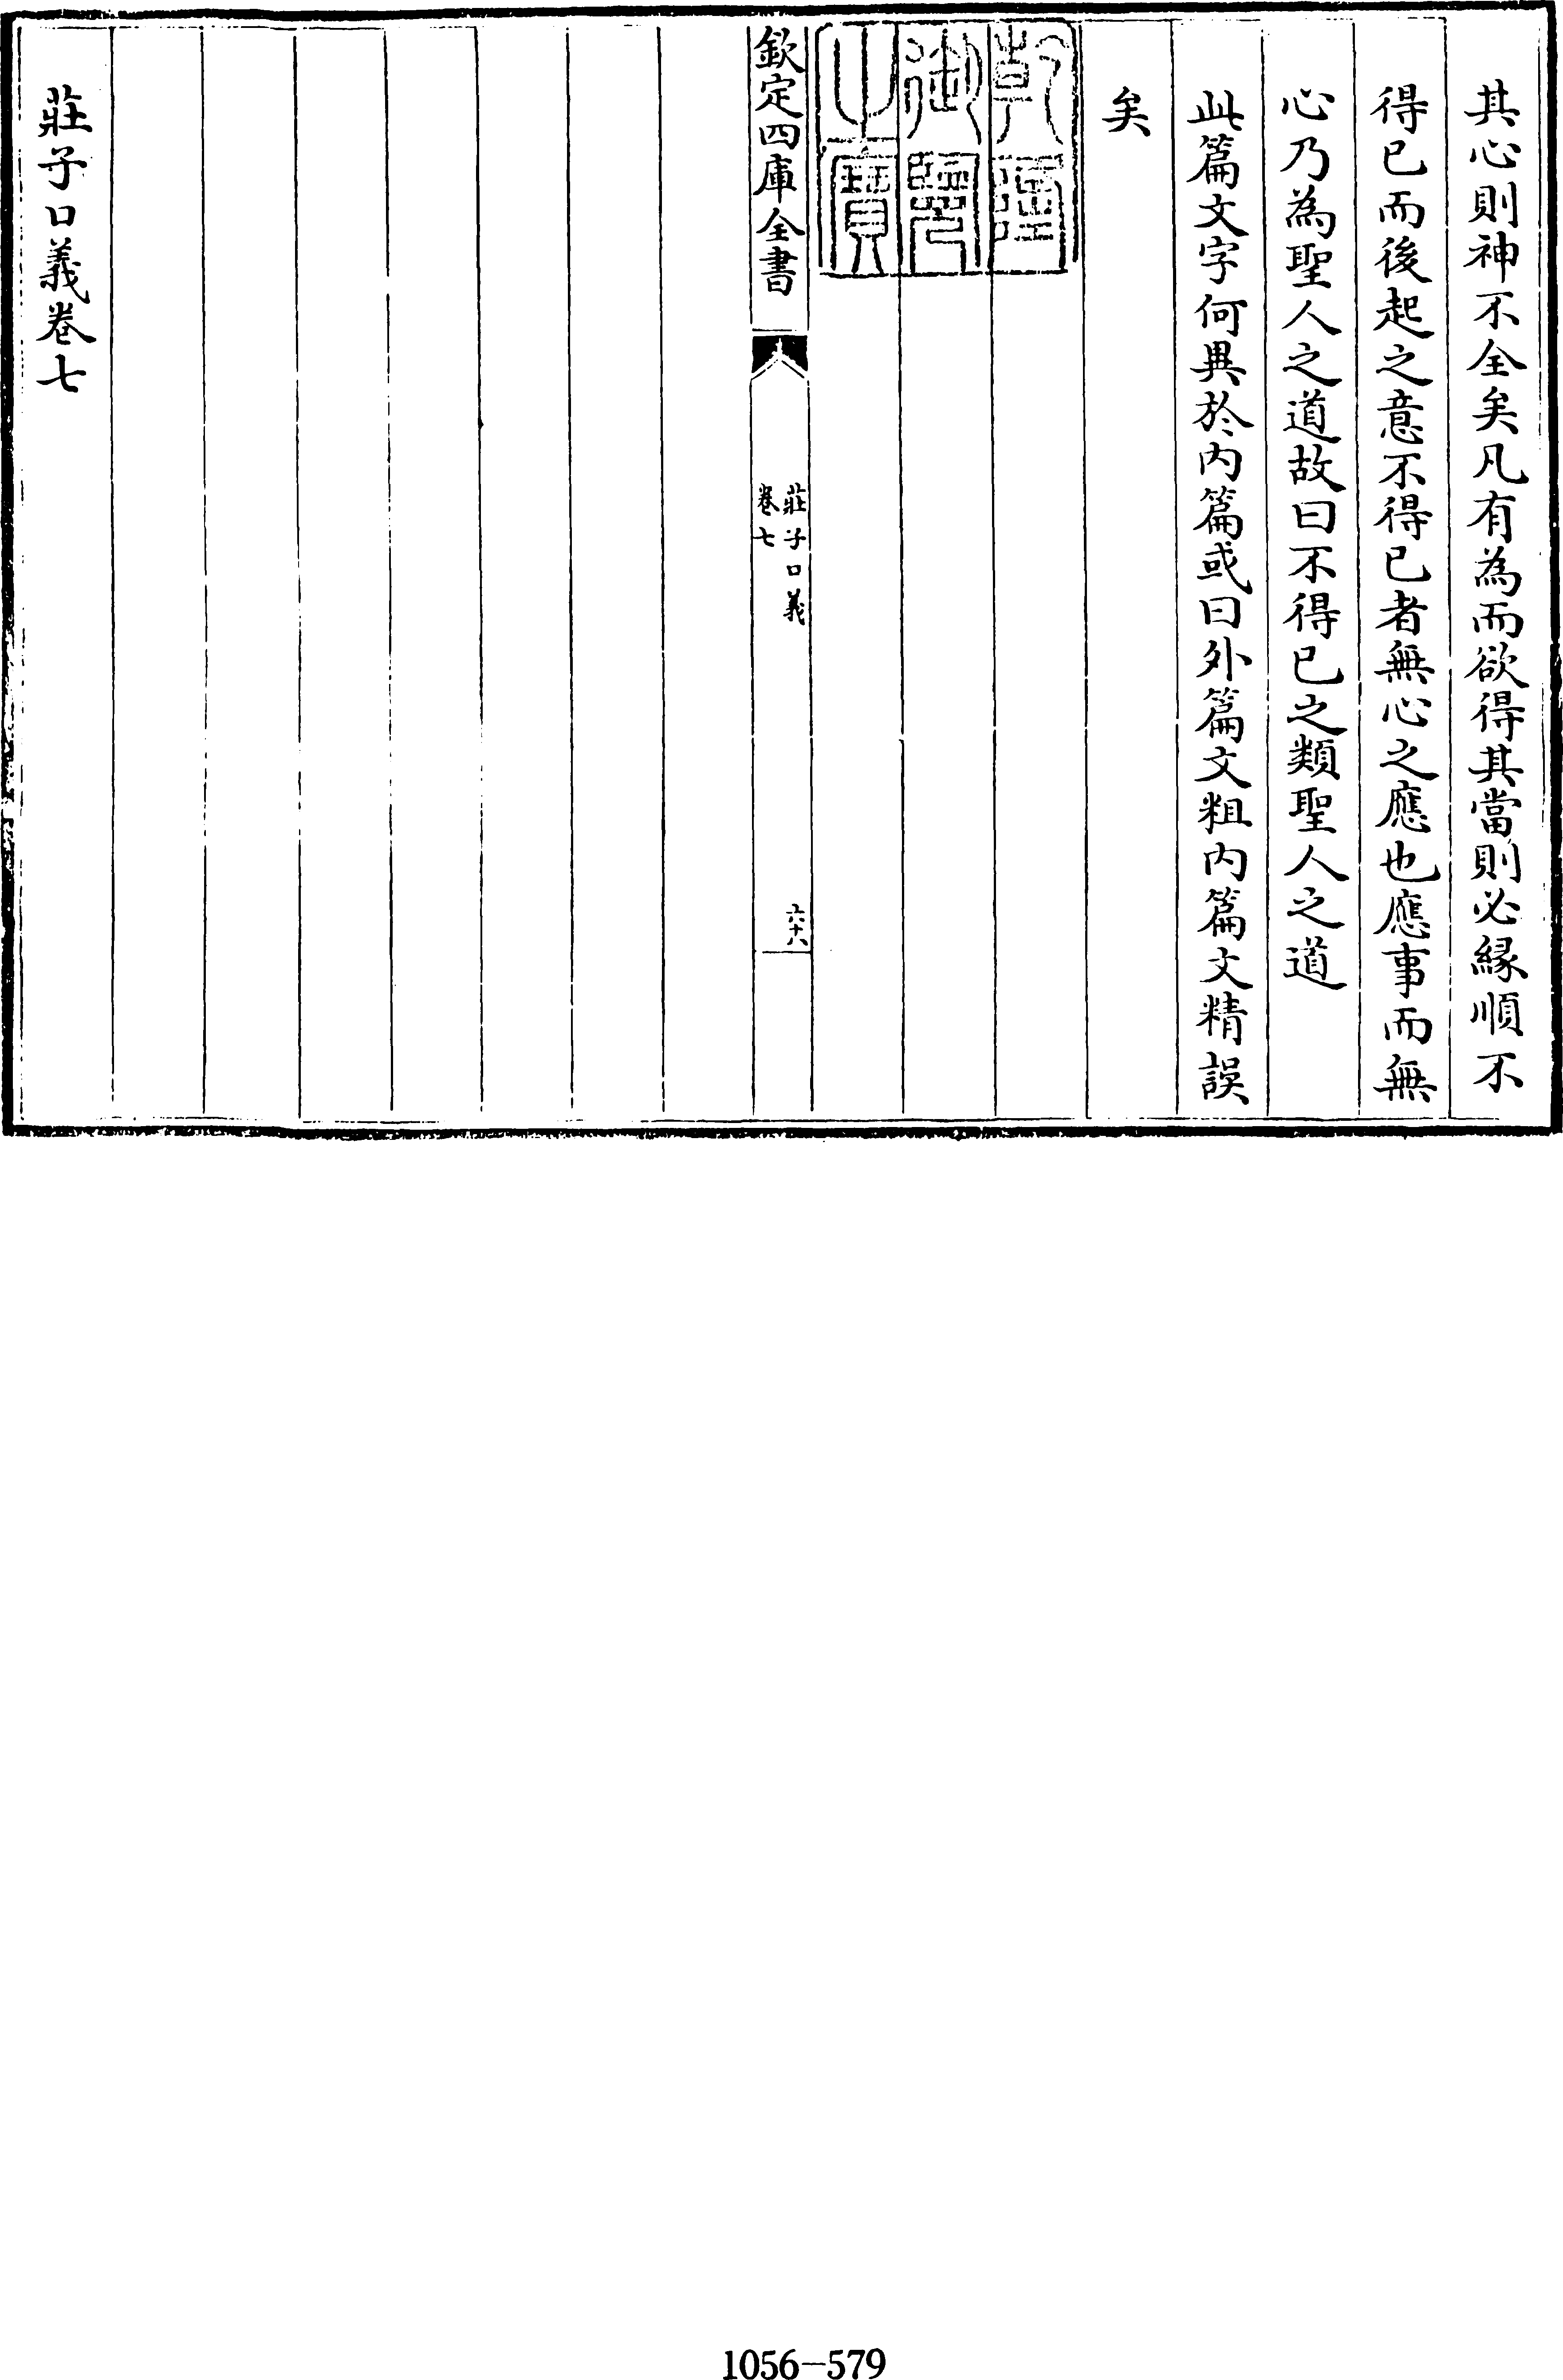 其心則神不全矣凡有為而欲得其當則必緣順不
得已而後起之意不得已者無心之應也應事而無
心乃為聖人之道故曰不得已之類聖人之道
此篇文字何異於内篇或曰外篇文粗内篇文精誤
矣
乾隆
御覽
之寶
欽定四庫全書
莊子口義
卷七
六十八
莊子口義卷七
1056-579